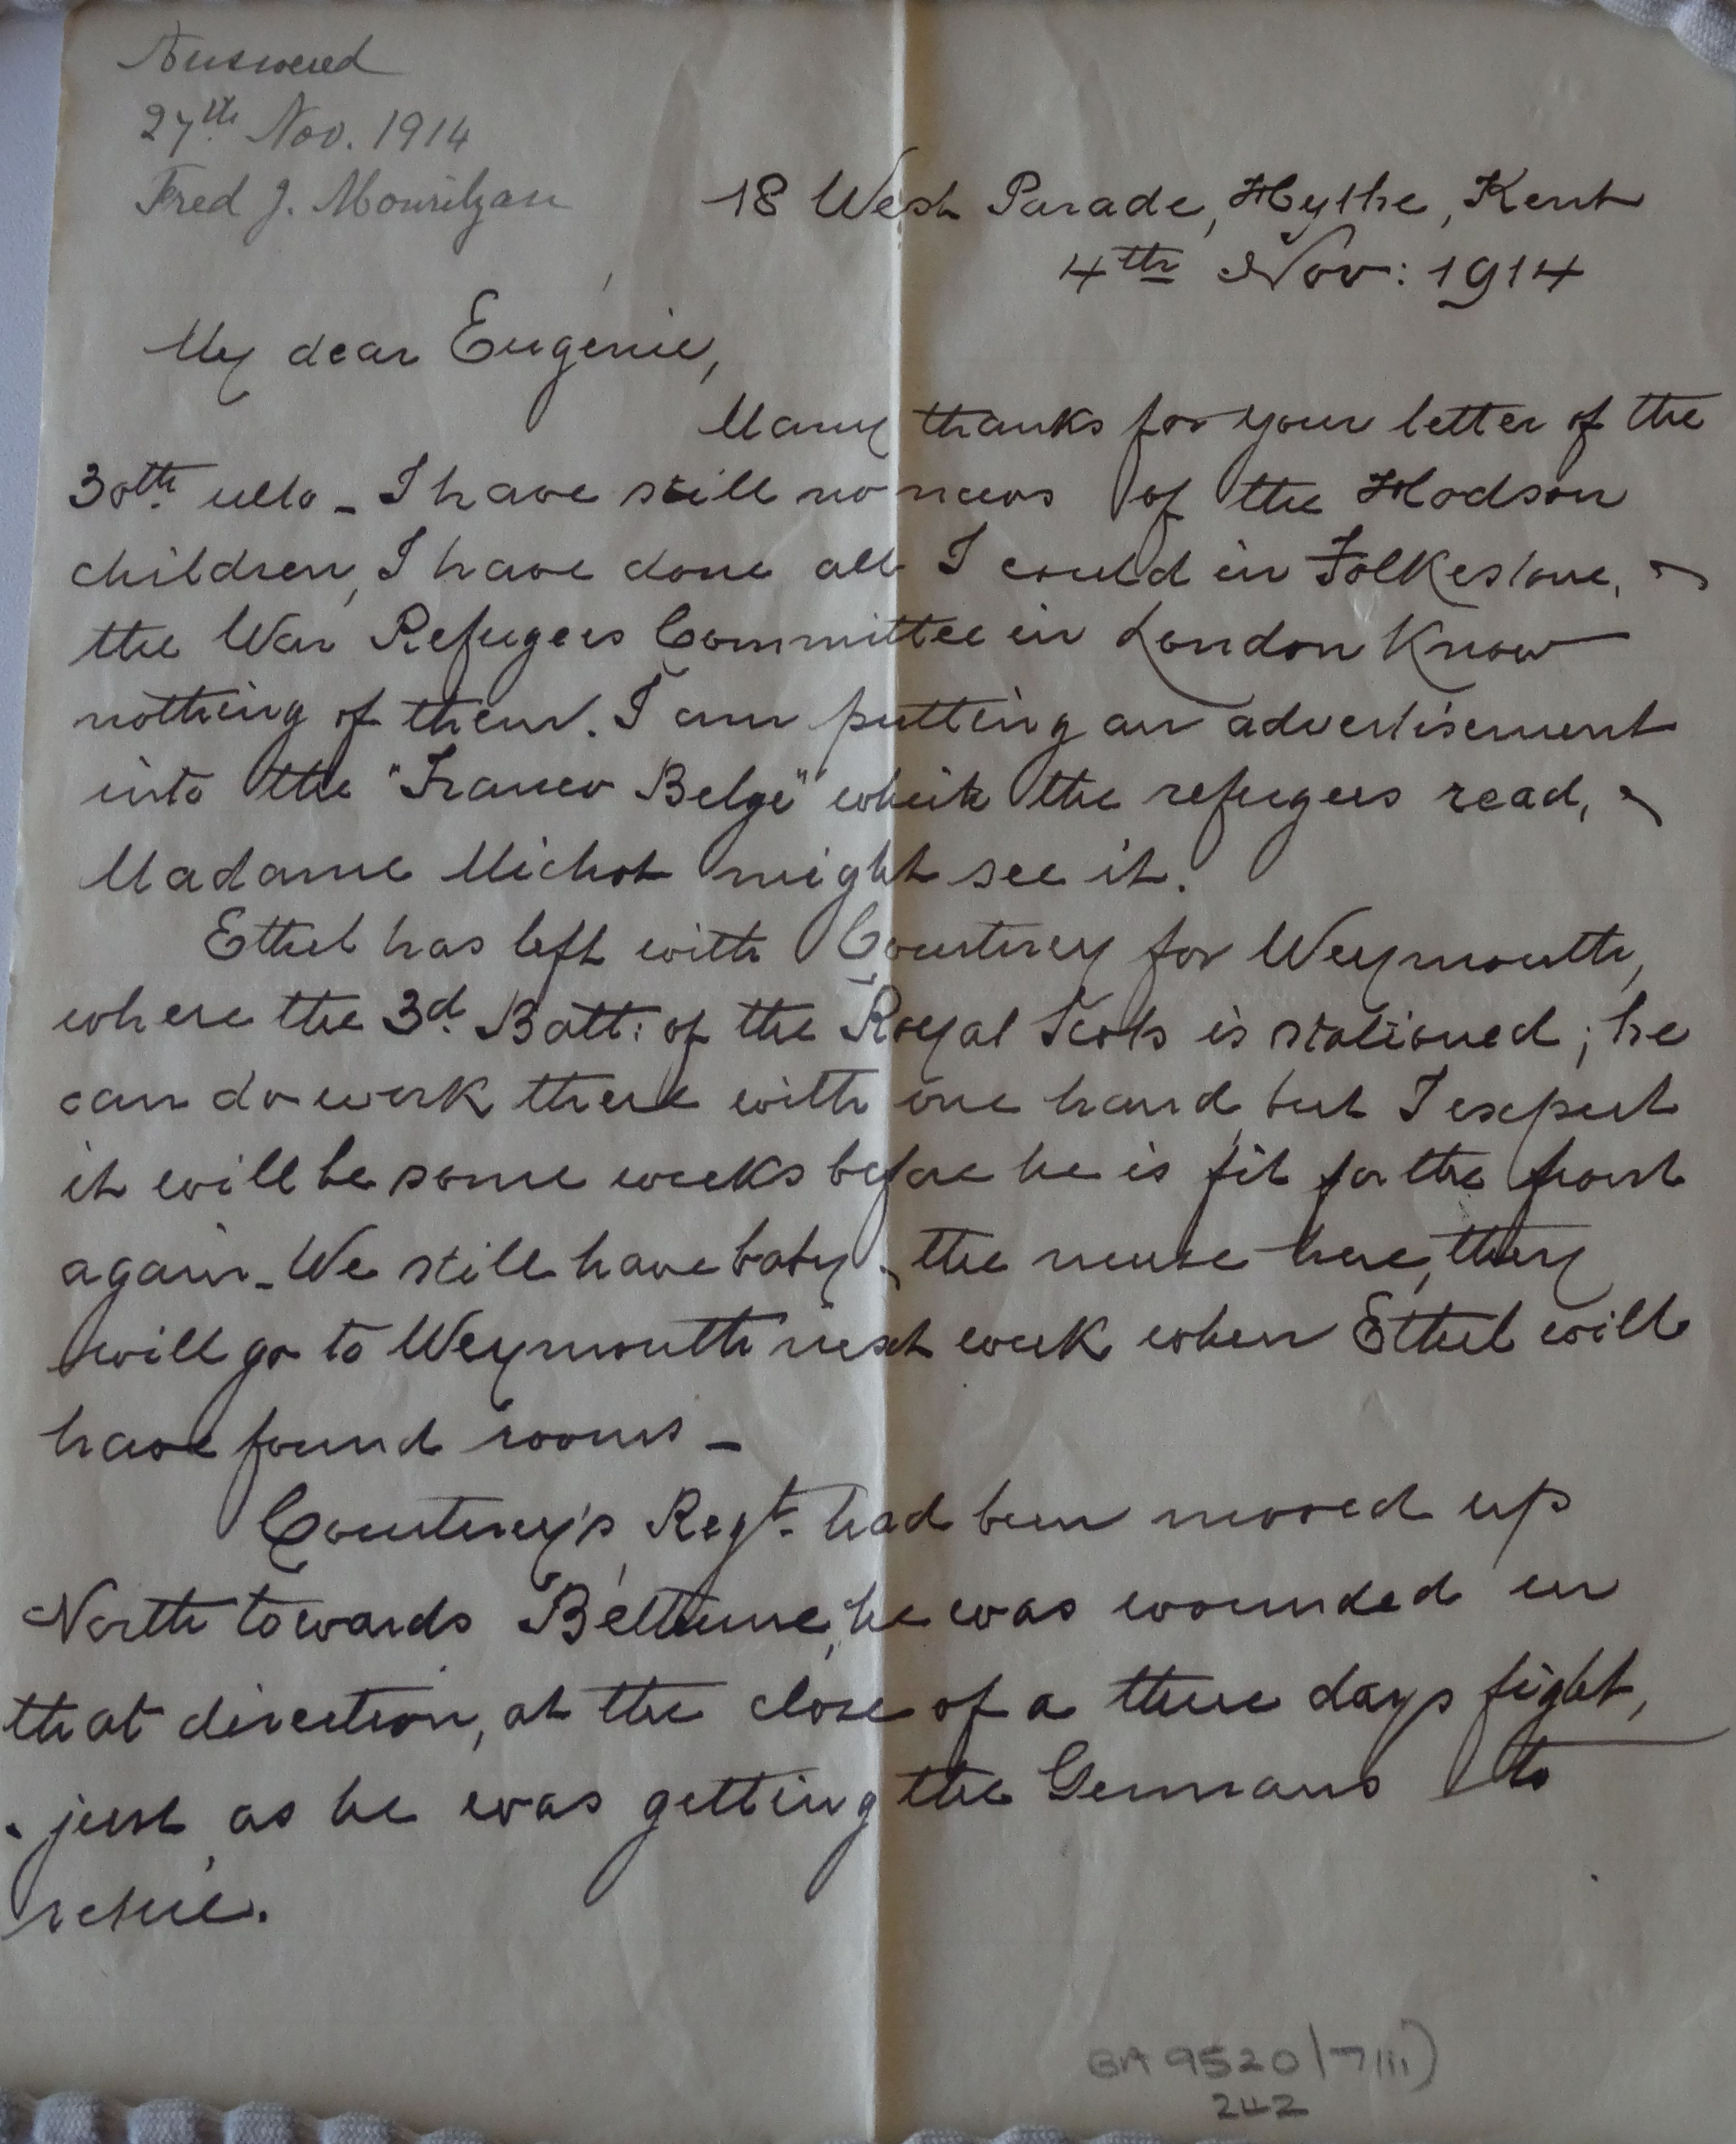 Answered
27th Nov. 1914
Fred J. Mouritzen
18 West Parade, Hythe, Kent
4th Nov: 1914
My dear Eugénie,
Many thanks for your letter of the
30th ulto - I have still no news of the Hodson
children, I have done all I could in Folkestone, &
the War Refugees Committee in London know
nothing of them. I am putting an advertisement
into the "Franco Belge" which the refugees read, &
Madame Michot might see it.
Ethel has left with Courtney for Weymouth,
where the 3d. Batt: of the Royal Scots is stationed; he
can do work there with one hand, but I expect
it will be some weeks before he is fit for the front
again - We still have baby & the nurse here, they
will go to Weymouth next week when Ethel will
have found rooms -
Courtney's Regt. had been moved up
North towards Béthune, he was wounded in
that direction, at the close of a three days fight,
& just as he was getting the Germans to
retire.
BA 9520/7(ii)
242